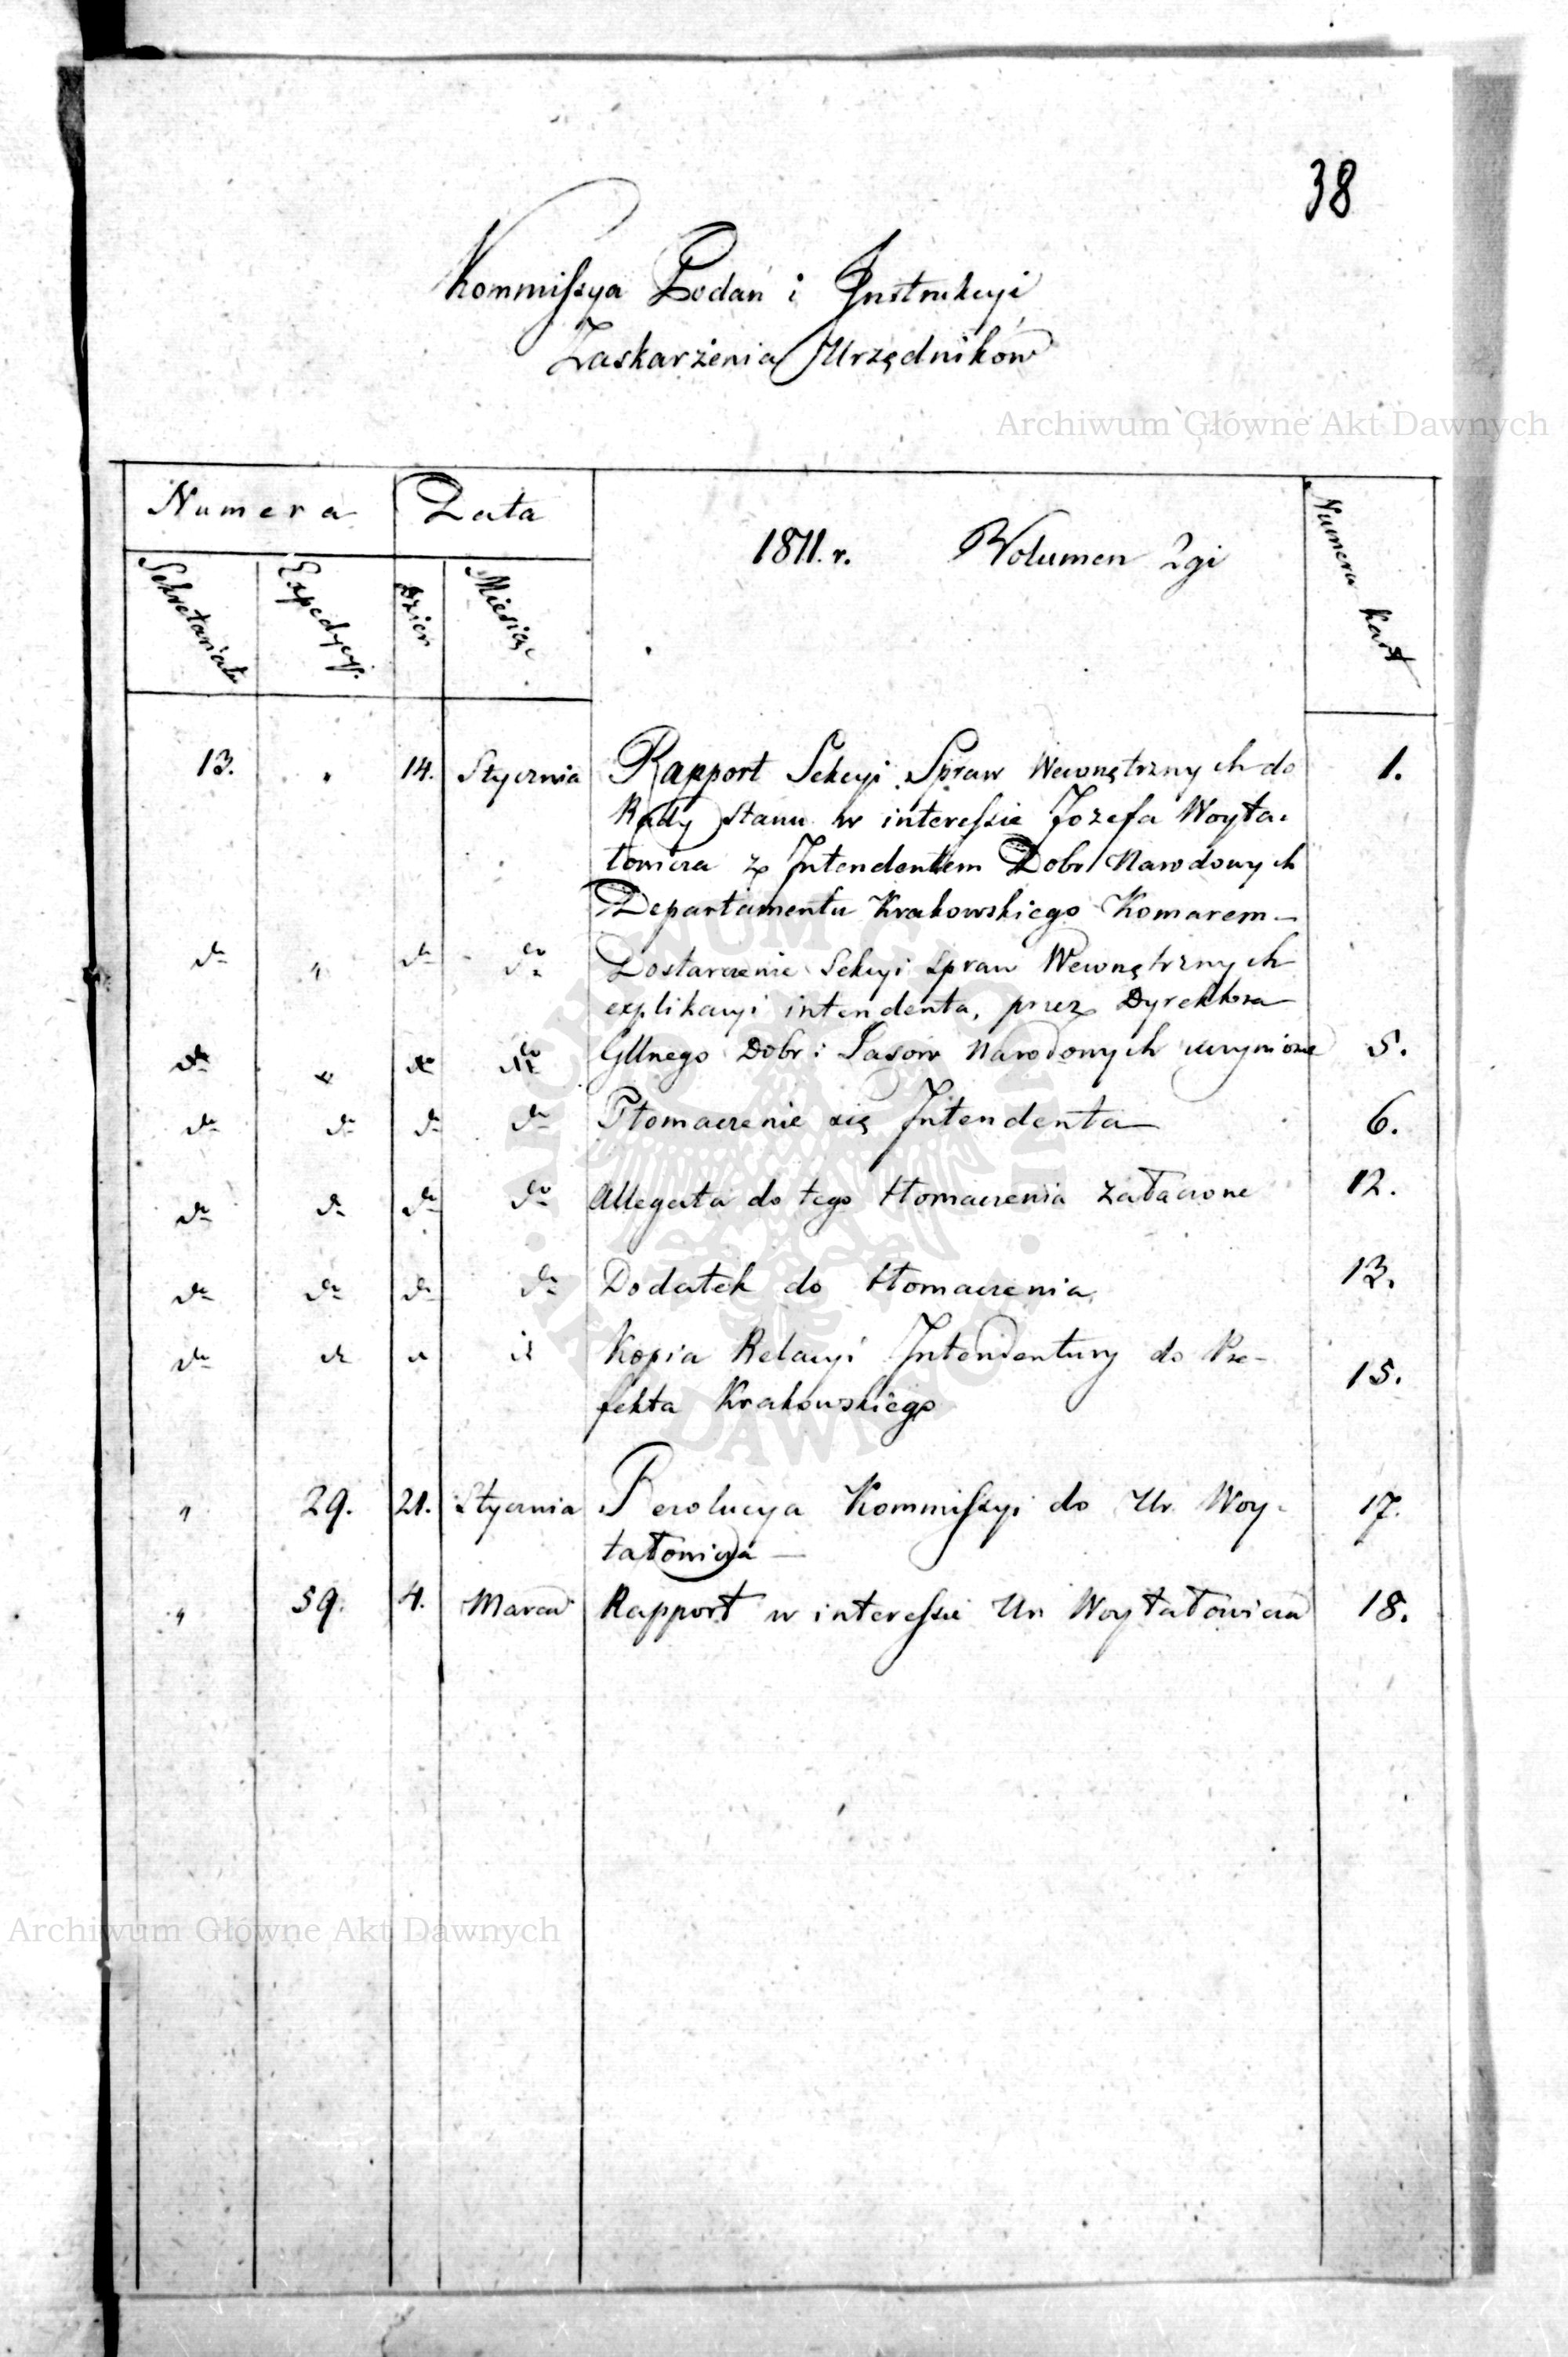 38
Kommissya Podań i Instrukcyi
Zaskarżenia Urzędników
Archiwum Główne Akt Dawnych
Numera Data
1811. r. Wolumen 2gi
Numera kart
Sekretariatu Expedycyi. Dzień Miesiąc
13. " 14. Stycznia Rapport Sekcyi Spraw Wewnętrznych do 1.
Rady Stanu w interessie Jozefa Woyta-
towicza z Intendentem Dobr Narodowych
Departamentu Krakowskiego Komarem —
do " do do Dostarczenie Sekcyi Spraw Wewnętrznych
explikacyi intendenta, przez Dyrektora
Gllnego Dobr i Lasow Narodowych uczynione 5.
do do do do Tłomaczenie się Intendenta — 6.
do do do do Allegata do tego tłomaczenia załączone 12.
do do do do Dodatek do tłomaczenia 13.
do do Kopia Relacyi Intendentury do Pre- 15.
fekta Krakowskiego
" 29. 21. Stycznia Rezolucya Kommissyi do Ur. Woy- 17.
tatowicza —
" 59. 4. Marca Rapport w interessie Ur. Woytatowicza 18.
Archiwum Główne Akt Dawnych
ARCHIWUM GŁÓWNE
AKT DAWNYCH